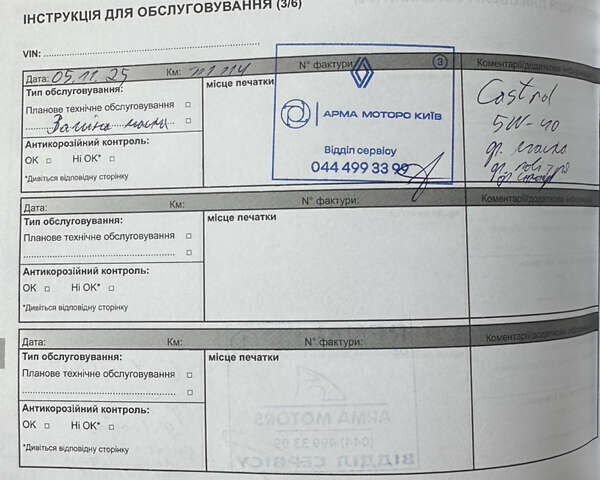 ІНСТРУКЦІЯ ДЛЯ ОБСЛУГОВУВАННЯ (3/6)
VIN:
Дата: 05.11.25 Км: N° фактури: Коментарі/додаткова
Тип обслуговування:
Планове технічне обслуговування
Заміна
Антикорозійний контроль:
OK Ні OK*
*Дивіться відповідну сторінку
місце печатки
3
АРМА МОТОРС КИЇВ
Відділ сервісу
044 499 33 99
Castrol
5W-40
Дата: Км: N° фактури: Коментарі/додаткова
Тип обслуговування:
Планове технічне обслуговування
Антикорозійний контроль:
OK Ні OK*
*Дивіться відповідну сторінку
місце печатки
Дата: Км: N° фактури: Коментарі/додаткова
Тип обслуговування:
Планове технічне обслуговування
Антикорозійний контроль:
OK Ні OK*
*Дивіться відповідну сторінку
місце печатки
ARMA MOTORS
(044) 499 33 99
ВІДДІЛ СЕРВІСУ